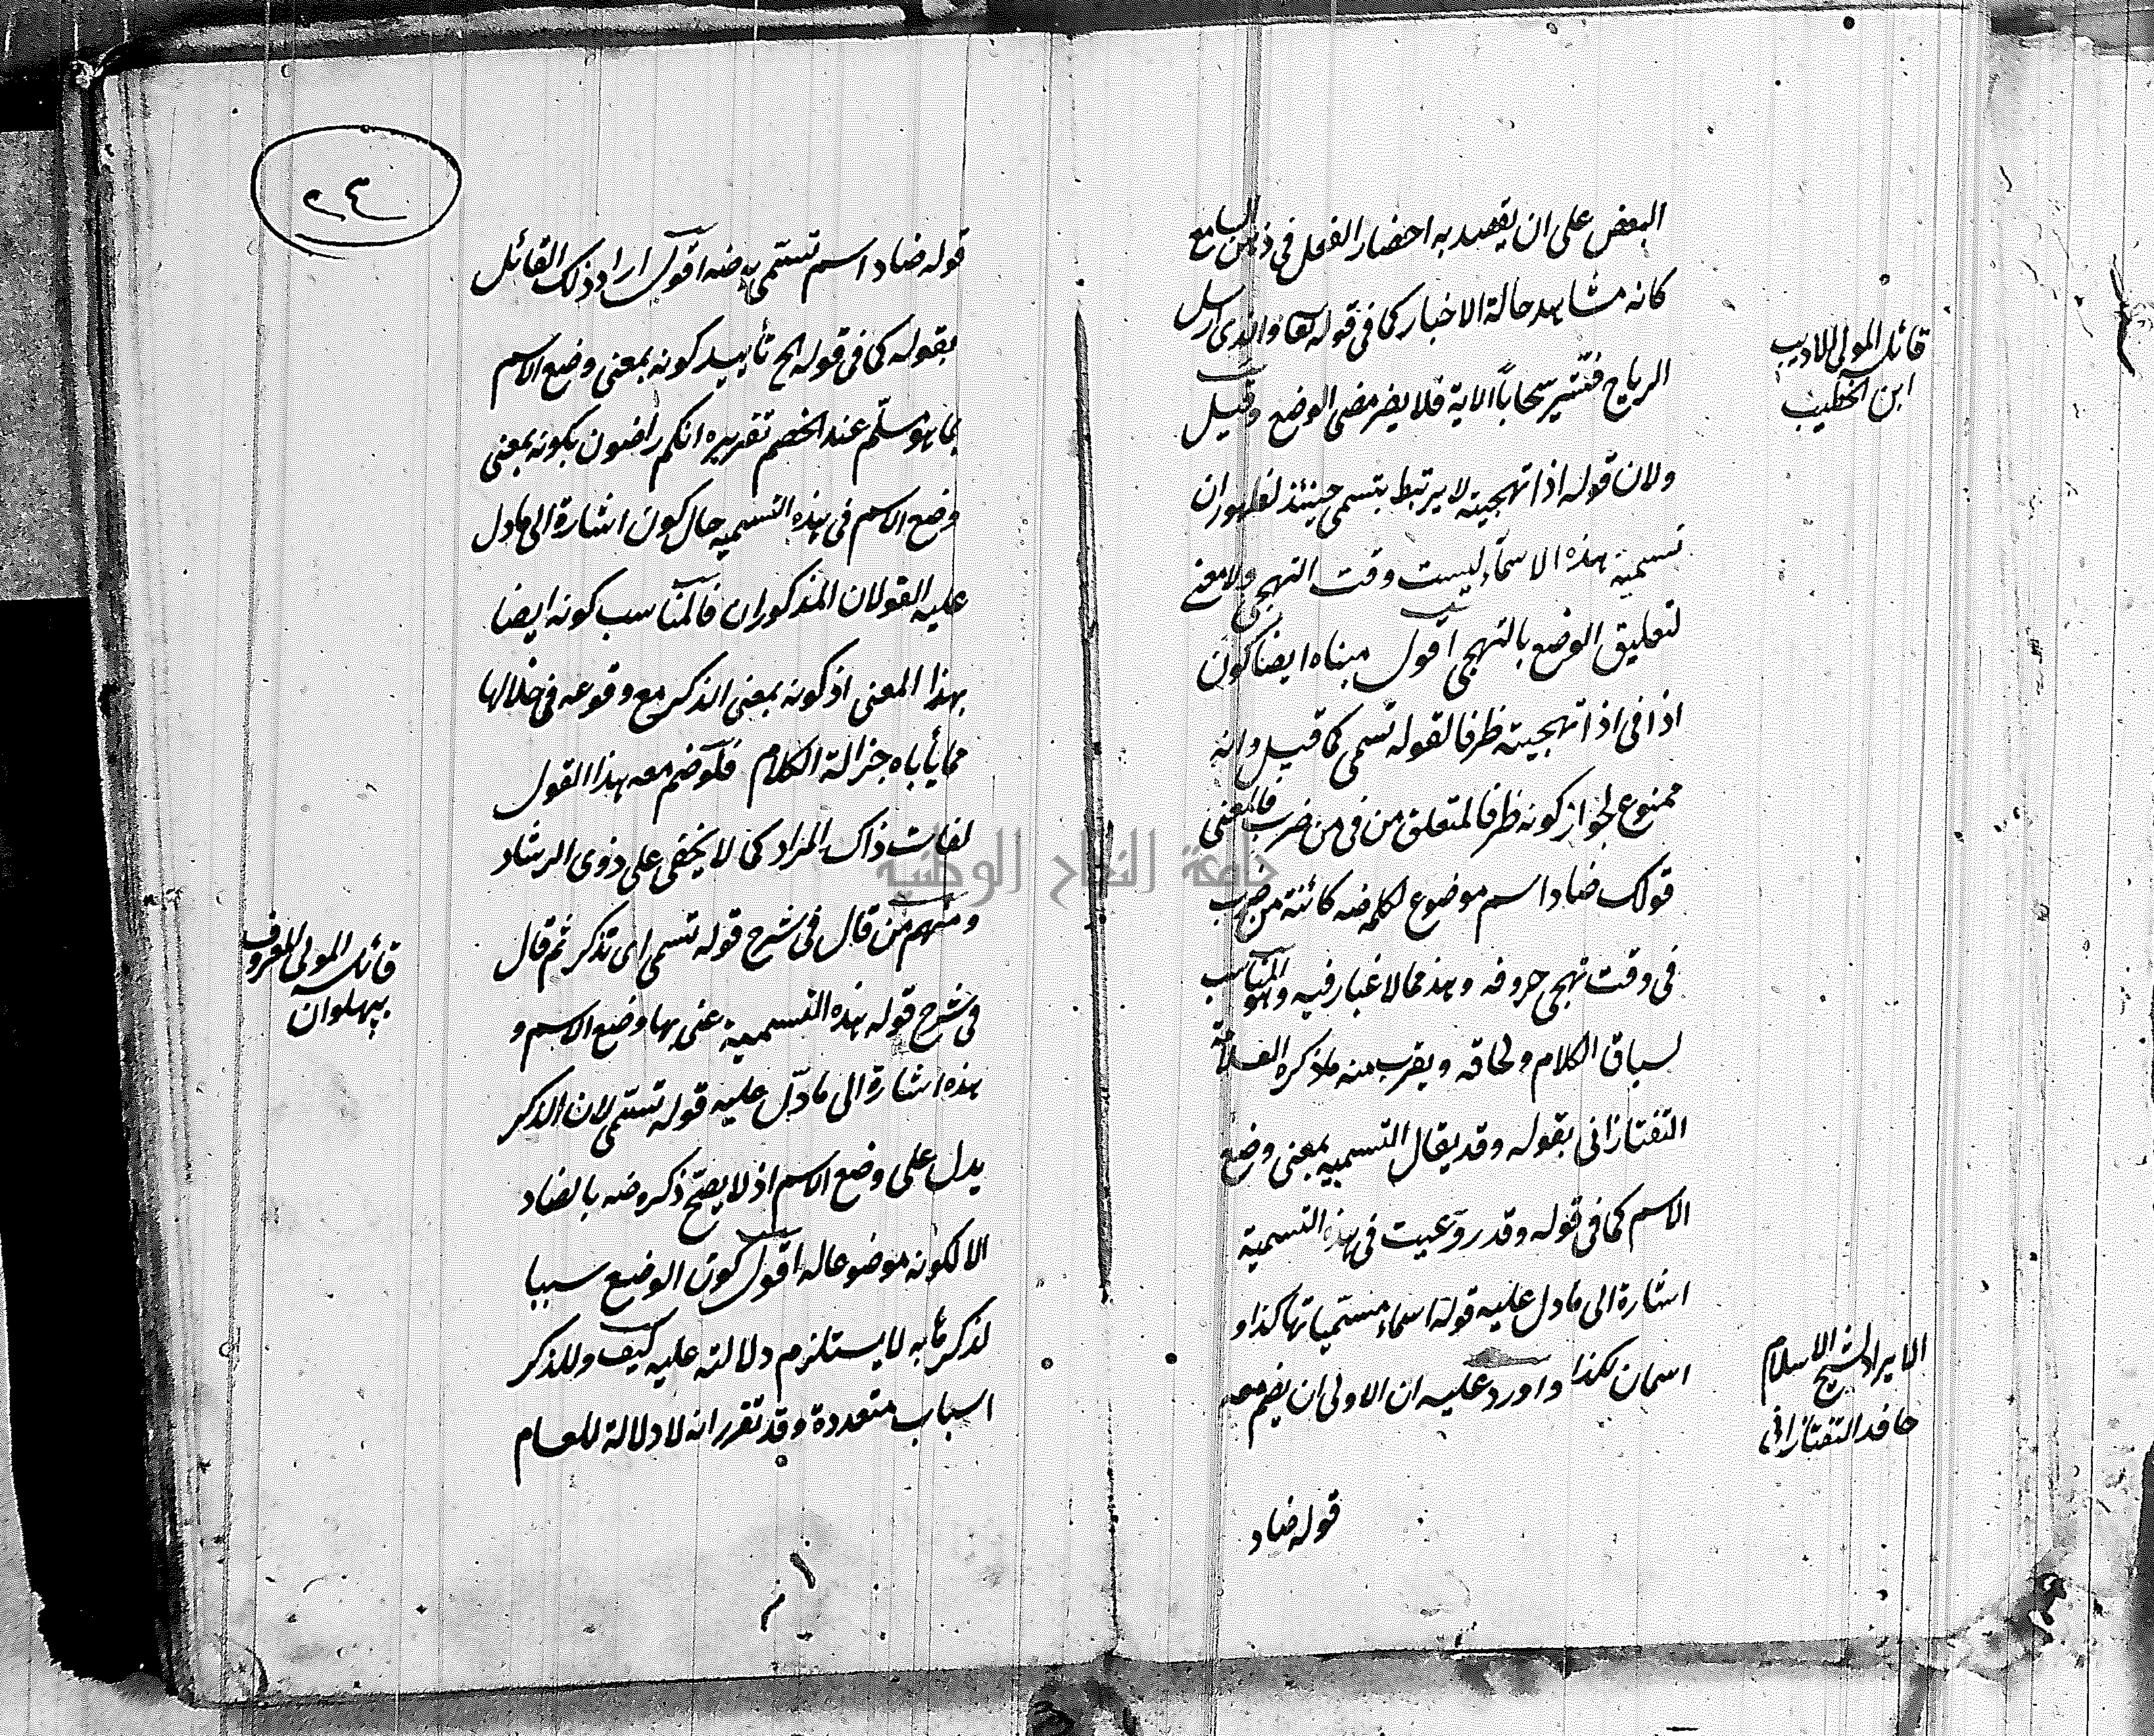 البعض على ان يقصد به احضار الفعل في ذهن السامع
كانه مشاهد حالة الاخبار كما في قوله تعا والذى ارسل
الرياح فتثير سحاباً الاية فلا يضر مضى الوضع وقيل
ولان قوله اذا تهجيته لا يرتبط بتسمى حينئذ لظهور ان
تسمية هذه الاسماء ليست وقت التهجى ولا معنى
لتعليق الوضع بالتهجى اقول مبناه ايضا كون
اذا في اذا تهجيته ظرفا لقوله تسمى كما قيل وانه
ممنوع لجواز كونه ظرفا لمتعلق من في من ضرب فالمعنى
قولك ضاد اسم موضوع لكلمه ضه كائنة من ضرب
في وقت تهجى حروفه وهذ مما لا غبار فيه وهو المناسب
لسباق الكلام ولحاقه ويقرب منه ما ذكره العلامة
التفتازانى بقوله وقد يقال التسمية بمعنى وضع
الاسم كما في قوله وقد روعيت في هذه التسمية
اشارة الى ما دل عليه قوله اسماء مسمياتها كذا و
اسمان لكذا واورد عليه ان الاولى ان يضم معه
قوله ضاد
قائله المولى الاديب
ابن الخطيب
الايراد لشيخ الاسلام
حافد التفتازانى
٢٤
قوله ضاد اسم تسمى به ضه اقول اراد ذلك القائل
بقوله كما في قوله الخ تأييد كونه بمعنى وضع الاسم
بما هو مسلم عند الخصم تقريره انكم راضون بكونه بمعنى
وضع الاسم في هذه التسمية حال كون اشارة الى ما دل
عليه القولان المذكوران فالمناسب كونه ايضا
بهذا المعنى اذ كونه بمعنى الذكر مع وقوعه في خلالها
مما يأباه جزالة الكلام فلو ضم معه هذا القول
لفات ذاك المراد كما لا يخفى على ذوى الرشاد
ومنهم من قال في شرح قوله تسمى اى تذكر ثم قال
في شرح قوله هذه التسمية عنى بها وضع الاسم و
هذه اشارة الى ما دل عليه قوله تسمى لان الذكر
يدل على وضع الاسم اذ لا يصح ذكر ضه بالضاد
الا لكونه موضوعا له اقول كون الوضع سببا
لذكر ما به لا يستلزم دلالته عليه كيف وللذكر
اسباب متعددة وقد تقرر انه لا دلالة للعام
قائله المولى المعروف
بپهلوان
جامعة النجاح الوطنية